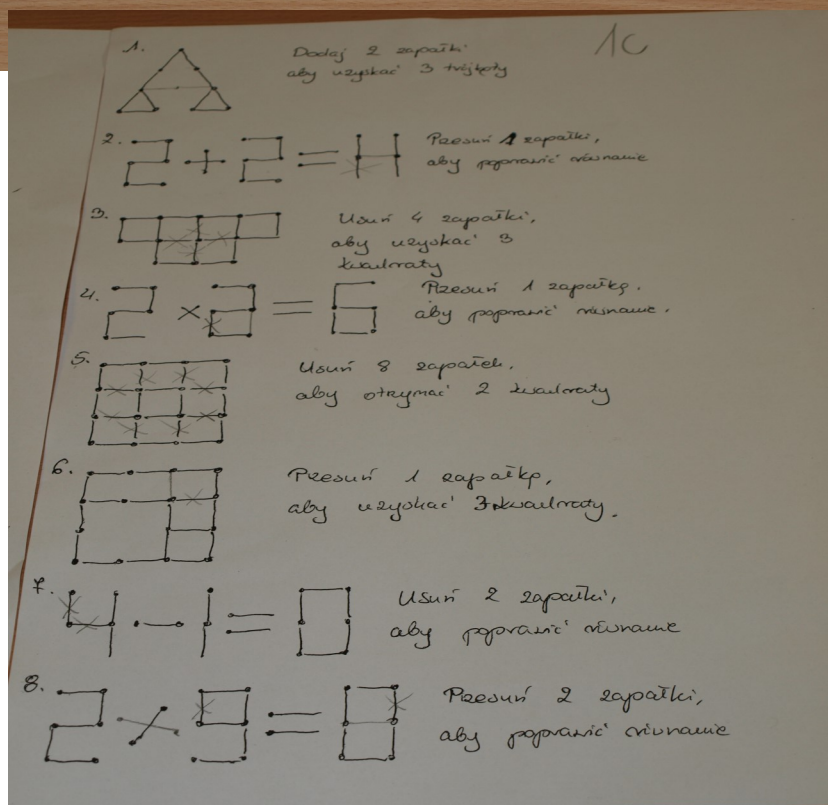 1C
1. Dodaj 2 zapałki
aby uzyskać 3 trójkąty
2. 2 + 2 = H Przesuń 1 zapałki,
aby poprawić równanie
3. Usuń 4 zapałki,
aby uzyskać 3
kwadraty
4. 2 × 2 = 6 Przesuń 1 zapałkę,
aby poprawić równanie.
5. Usuń 8 zapałek,
aby otrymać 2 kwadraty
6. Przesuń 1 zapałkę,
aby uzyskać 3 kwadraty.
7. 4 - 1 = 0 Usuń 2 zapałki,
aby poprawić równanie
8. 2 / 9 = 0 Przesuń 2 zapałki,
aby poprawić równanie